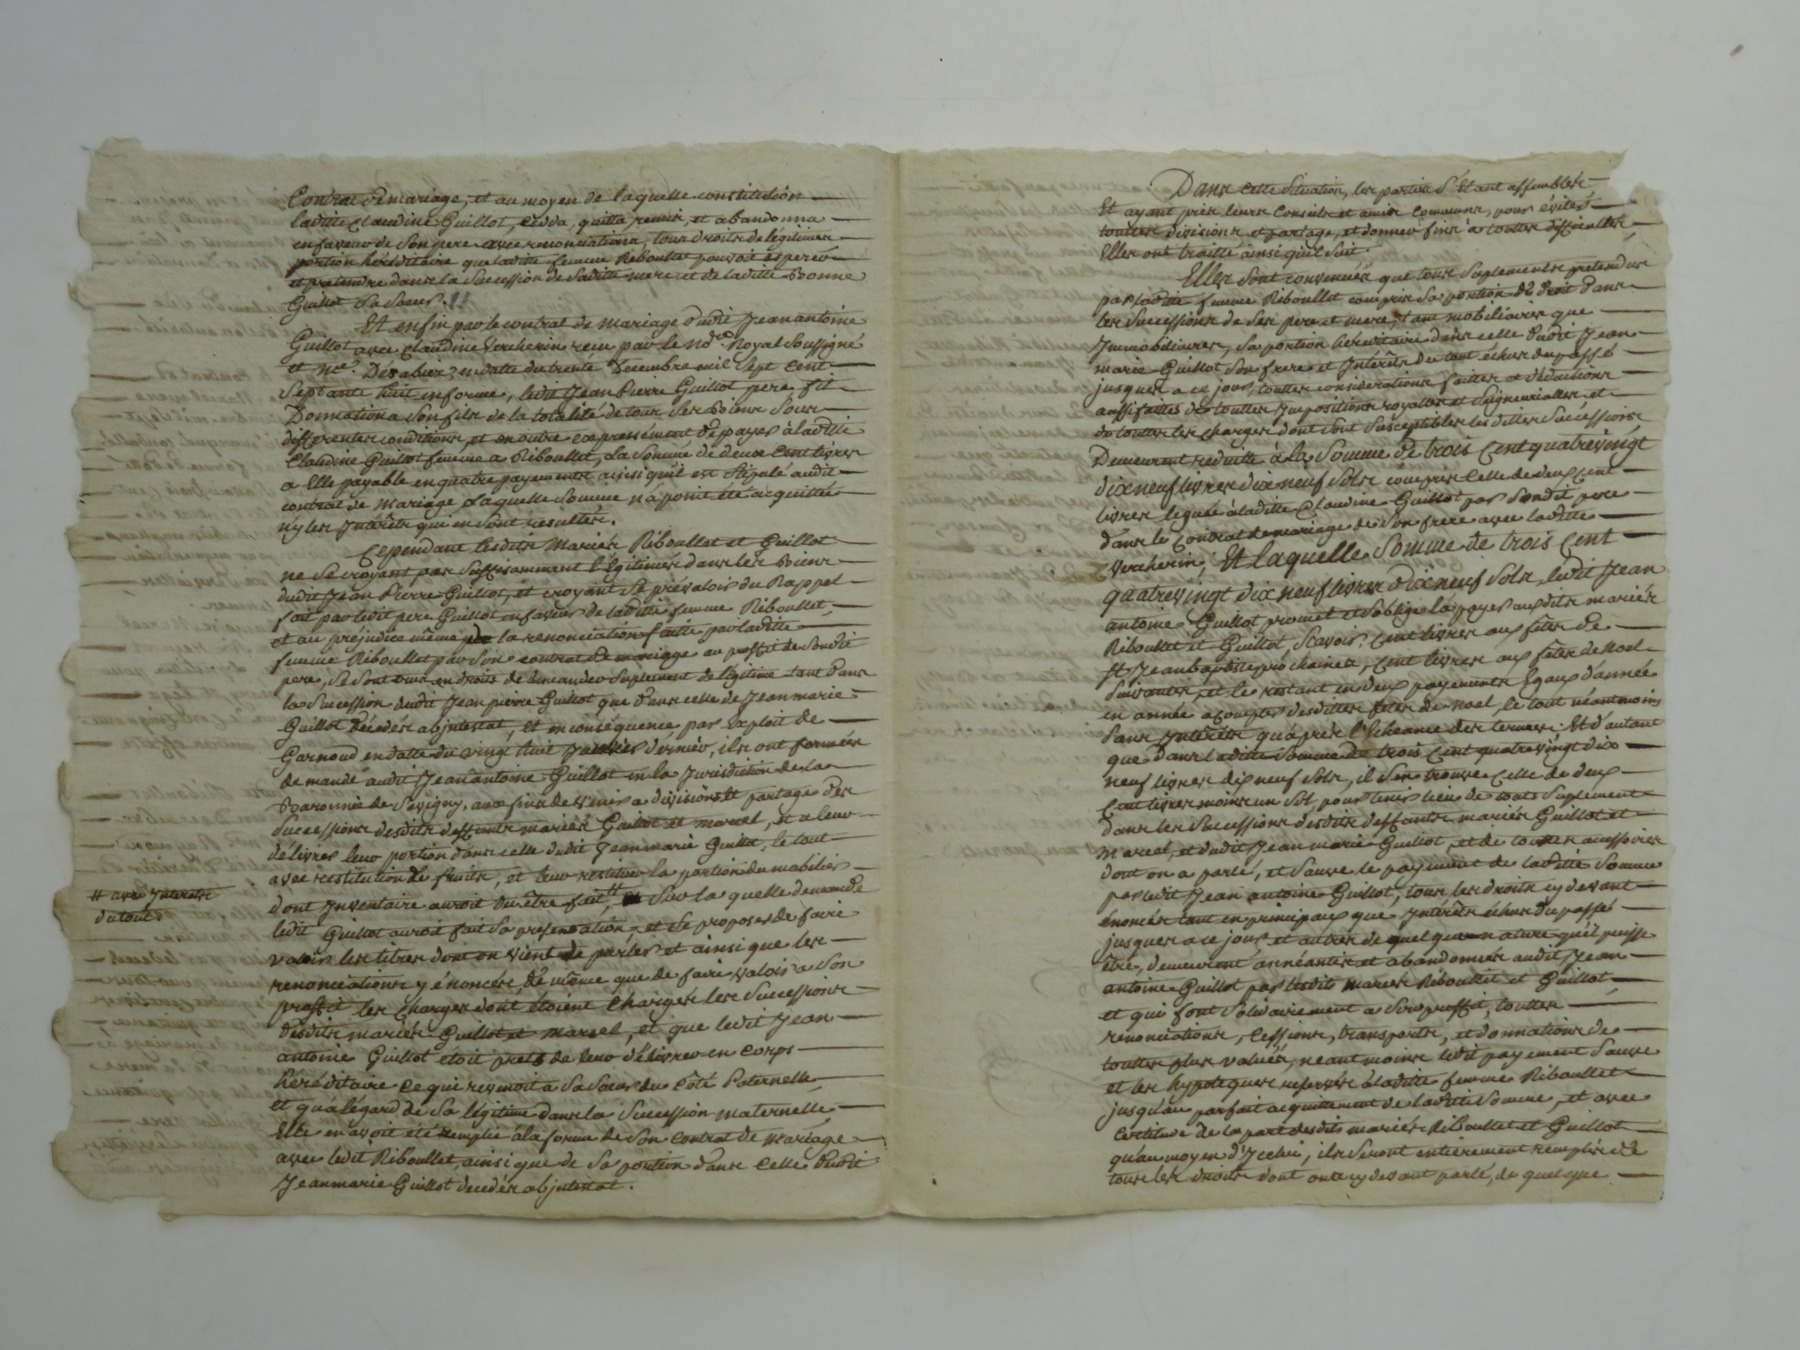 Contrat de mariage, et au moyen de laquelle constitution
ladite Claudine Guillot, cedda, quitta, remit, et abandonna
en faveur de son pere avec renonciation, tous droits de légitime
portion héréditaire que ladite femme Riboullet pouvoit esperer
et pretendre dans la succession de sadite mere et de ladite Bonne
Guillot sa soeur.
Et enfin par le contrat de mariage dudit Jean antoine
Guillot avec Claudine Vercherin recu par le nore Royal soussigné
et Me. Desabiez, en datte du trente Decembre mil sept cent
septante huit en forme, ledit Jean Pierre Guillot pere fit
Donnation a son fils de la totalité de tous ses Biens sous
differentes conditions, et en outre expressément de payer à ladite
Claudine Guillot femme a Riboullet, la somme de deux cent livres
a Elle payable en quatre payements ainsi qu'il est stipulé audit
contrat de mariage laquelle somme n'a point été acquittée
ny les Intérêts qui en sont resultés.
Cependant lesdits Mariés Riboullet et Guillot
ne se croyant pas suffisamment légitimés dans les Biens
dudit Jean Pierre Guillot, et croyant se prévaloir du Rappel
fait par ledit pere Guillot en faveur de ladite femme Riboullet,
et au préjudice même de la renonciation faitte par ladite
femme Riboullet par son contrat de mariage au proffit de sondit
pere, se sont crus en droits de demander suplement de légitime tant dans
la succession dudit Jean pierre Guillot que dans celle de Jean marie
Guillot décédés abjntestat, et en conséquence, par Exploit de
Garnoud en datte du vingt huit Janvier dernier, ils ont formés
demande audit Jean antoine Guillot en la Jurisdiction de la
Baronnie de Savigny, aux fins de venir a division et partage des
successions desdits deffunts mariés Guillot et marcel, et a leur
délivrer leur portion dans celle dudit Jean marie Guillot, le tout
avec restitution de fruits, et leur restituer la portion du mobilier
dont Inventaire auroit du être fait, # sur la quelle demande
# avec Interets
du tout
ledit Guillot auroit fait sa présentation, et se proposer de faire
valoir les titres dont on vient de parler et ainsi que les
renonciations y énoncées, de même que de faire valoir a son
proffit les charges dont étoient chargés les successions
desdits mariés Guillot et marcel, et que ledit Jean
antoine Guillot etoit prets de leur délivrer en corps
héréditaire ce qui revenoit a sa soeur du côté Paternelle,
et qu'a légard de sa légitime dans la succession maternelle
Elle en avoit été remplie à la forme de son contrat de mariage
avec ledit Riboullet, ainsi que de sa portion dans celle dudit
Jean marie Guillot decedés abjntestat.
Dans cette situation, les parties s'étant assemblés
Et ayant pris leurs conseils et amis communs, pour éviter
touttes divisions et partage, et donner fins à touttes difficultés,
Elles ont traitté ainsi qu'il suit.
Elles sont convenues que tous suplements pretendus
par ladite femme Riboullet compris sa portion de droit dans
les successions de ses pere et mere, tant mobiliaires que
Immobiliaires, sa portion héréditaire dans celle dudit Jean
marie Guillot son frere et Intérêts du tout échus du passé
jusques a ce jour, touttes considerations faittes et déductions
aussi faittes de touttes Impositions royalles et seigneurialles et
de touttes les charges dont sont susceptibles lesdittes successions
Demeurent reduitte à la somme de trois cent quatrevingt
dixneuf livres dix neuf sols compris celle de deux cent
livres leguée à ladite Claudine Guillot par sondit pere
dans le Contrat de mariage de son frere avec ladite
Vercherin, Et laquelle somme de trois cent
quatrevingt dix neuf livres dix neuf sols ledit Jean
antoine Guillot promet et s'oblige la payer auxdits mariés
Riboullet et Guillot, scavoir, cent livres aux fêtes de
st Jean baptiste prochaines, cent livres aux fêtes de Noel
suivantes, et le restant en deux payements Egaux d'année
en année a compter desdittes fêtes de noel, le tout néantmoins
sans Intérêts qu'après l'Echeance des termes. Et d'autant
que dans ladite somme de trois cent quatre vingt dix
neuf livres dix neuf sols, il s'en trouve celle de deux
Cent livres moins un sol, pour tenir lieu de touts suplements
dans les successions desdits deffunts mariés Guillot et
marcel, et dudit Jean marie Guillot, et de touttes accessoires
dont on a parlé, et sauve le payement de ladite somme
par ledit Jean antoine Guillot, tous les droits cy devant
énoncés tant en principaux que Intérêts échus du passé
jusques a ce jour et autres de quelque nature qu'il puisse
être, demeurent annéantis et abandonnés audit Jean
antoine Guillot par lesdits mariés Riboullet et Guillot
et qui font solidairement a son proffit, touttes
renonciations, cessions, transports, et donnations de
touttes plus values, néantmoins ledit payement sauve
et les hypoteques reservés à ladite femme Riboullet
jusqu'au parfait acquittement de ladite somme, et avec
certitude de la part desdits mariés Riboullet et Guillot
qu'au moyen d'Jcelui, ils seront entierement remplis de
tous les droits dont on a cy devant parlé, de quelque